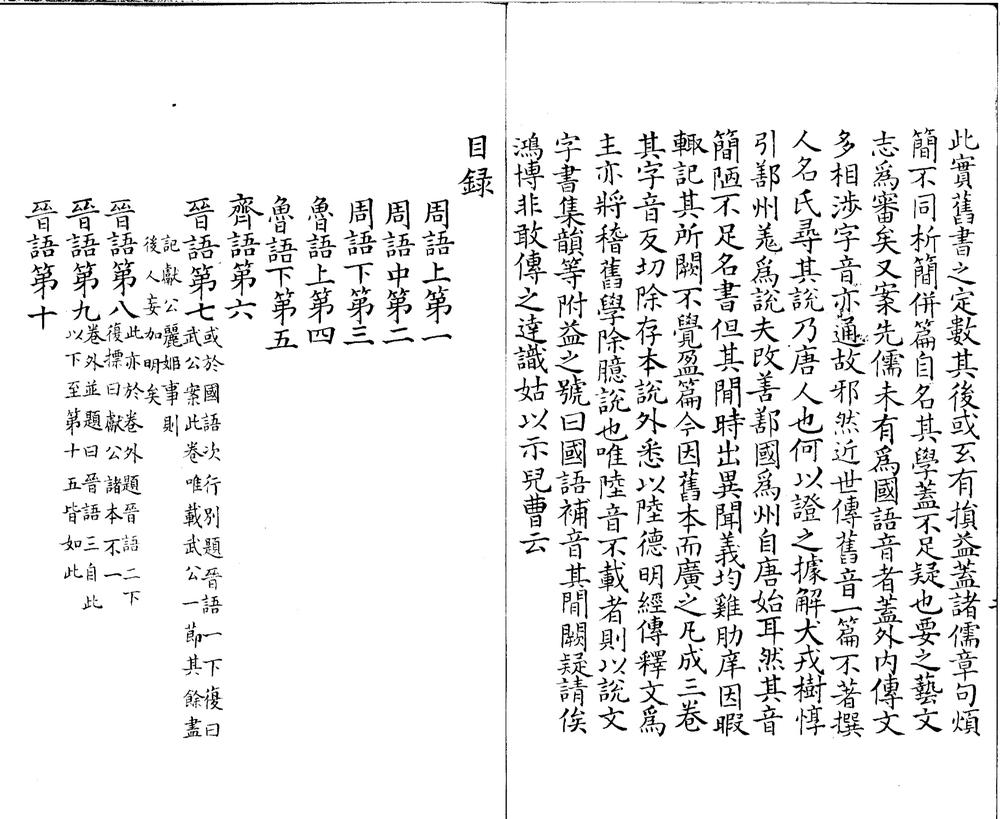 此實舊書之定數其後或玄有損益蓋諸儒章句煩
簡不同析簡併篇自名其學蓋不足疑也要之藝文
志為審矣又案先儒未有為國語音者蓋外內傳文
多相涉字音亦通故邪然近世傳舊音一篇不著撰
人名氏尋其說乃唐人也何以證之據解犬戎樹惇
引鄯州羗為說夫改善鄯國為州自唐始耳然其音
簡陋不足名書但其間時出異聞義均雞肋庠因暇
輙記其所闕不覺盈篇今因舊本而廣之凡成三卷
其字音反切除存本說外悉以陸德明經傳釋文為
主亦將稽舊學除臆說也唯陸音不載者則以說文
字書集韻等附益之號曰國語補音其間闕疑請俟
鴻博非敢傳之達識姑以示兒曹云
目録
周語上第一
周語中第二
周語下第三
魯語上第四
魯語下第五
齊語第六
晉語第七或於國語次行別題晉語一下復曰
武公案此卷唯載武公一節其餘盡
記獻公麗姬事則
後人妄加明矣
晉語第八此亦於卷外題晉語二下
復摽曰獻公諸本不一
晉語第九卷外並題曰晉語三自此
以下至第十五皆如此
晉語第十